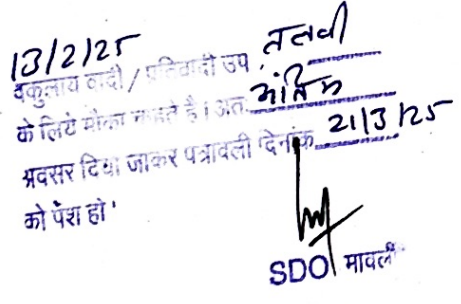 13/2/25
वकुलाय वादी / प्रतिवादी उप तलवी
के लिये मौका चाहते है। अतः अंतिम
अवसर दिया जाकर पत्रावली दिनांक 21/3/25
को पेश हो।
SDO मावली